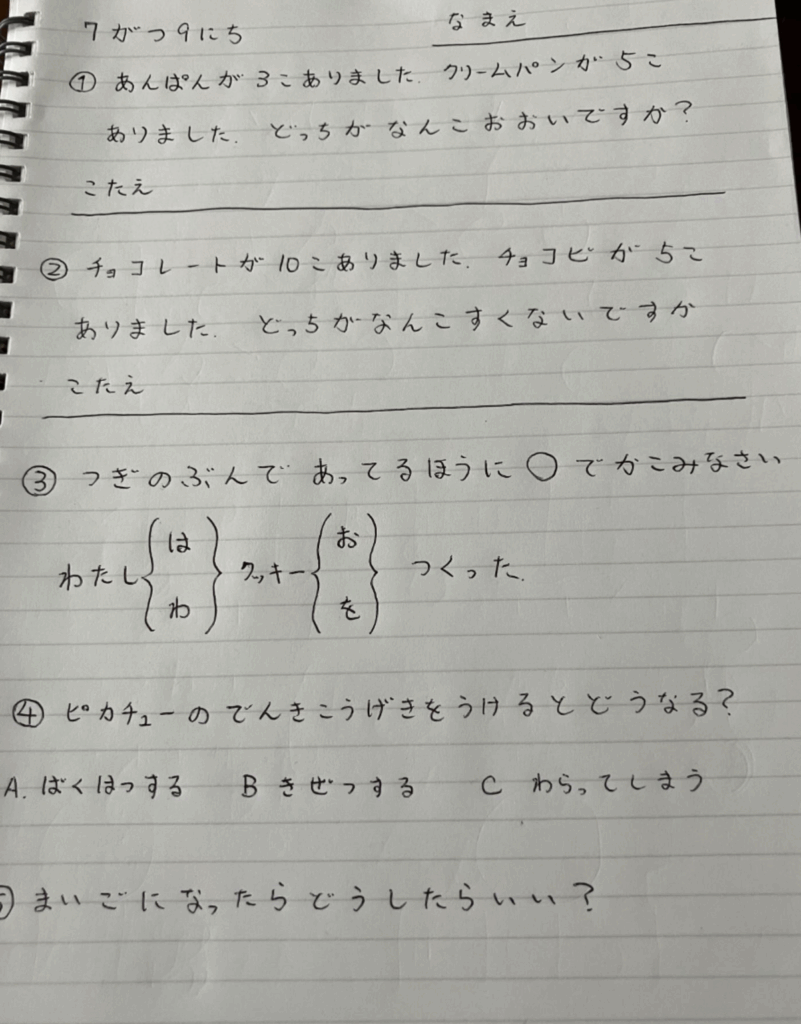 7がつ9にち
なまえ
① あんぱんが3こありました. クリームパンが5こ
ありました. どっちがなんこおおいですか?
こたえ
② チョコレートが10こありました. チョコビが5こ
ありました. どっちがなんこすくないですか
こたえ
③ つぎのぶんであってるほうに○でかこみなさい
わたし{は わ}クッキー{お を}つくった.
④ ピカチューのでんきこうげきをうけるとどうなる?
A. ばくはつする B きぜつする C わらってしまう
⑤ まいごになったらどうしたらいい?